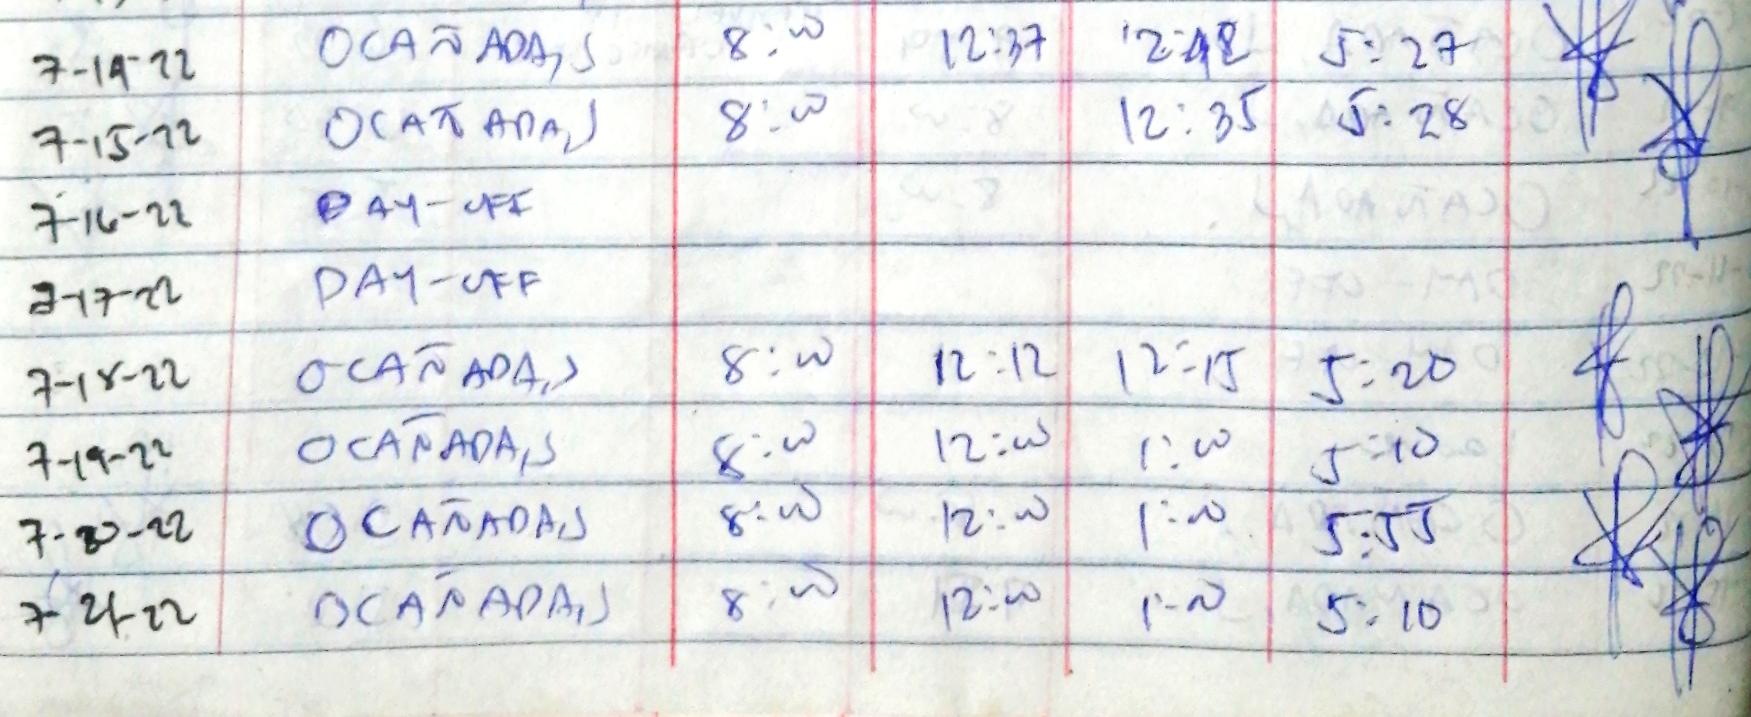 7-14-22 OCAÑADA, J 8:00 12:37 12:48 5:27
7-15-22 OCAÑADA, J 8:00 12:35 5:28
7-16-22 DAY-OFF
7-17-22 DAY-OFF
7-18-22 OCAÑADA, J 8:00 12:12 12:15 5:20
7-19-22 OCAÑADA, J 8:00 12:00 1:00 5:10
7-20-22 OCAÑADA, J 8:00 12:00 1:00 5:55
7-21-22 OCAÑADA, J 8:00 12:00 1:00 5:10